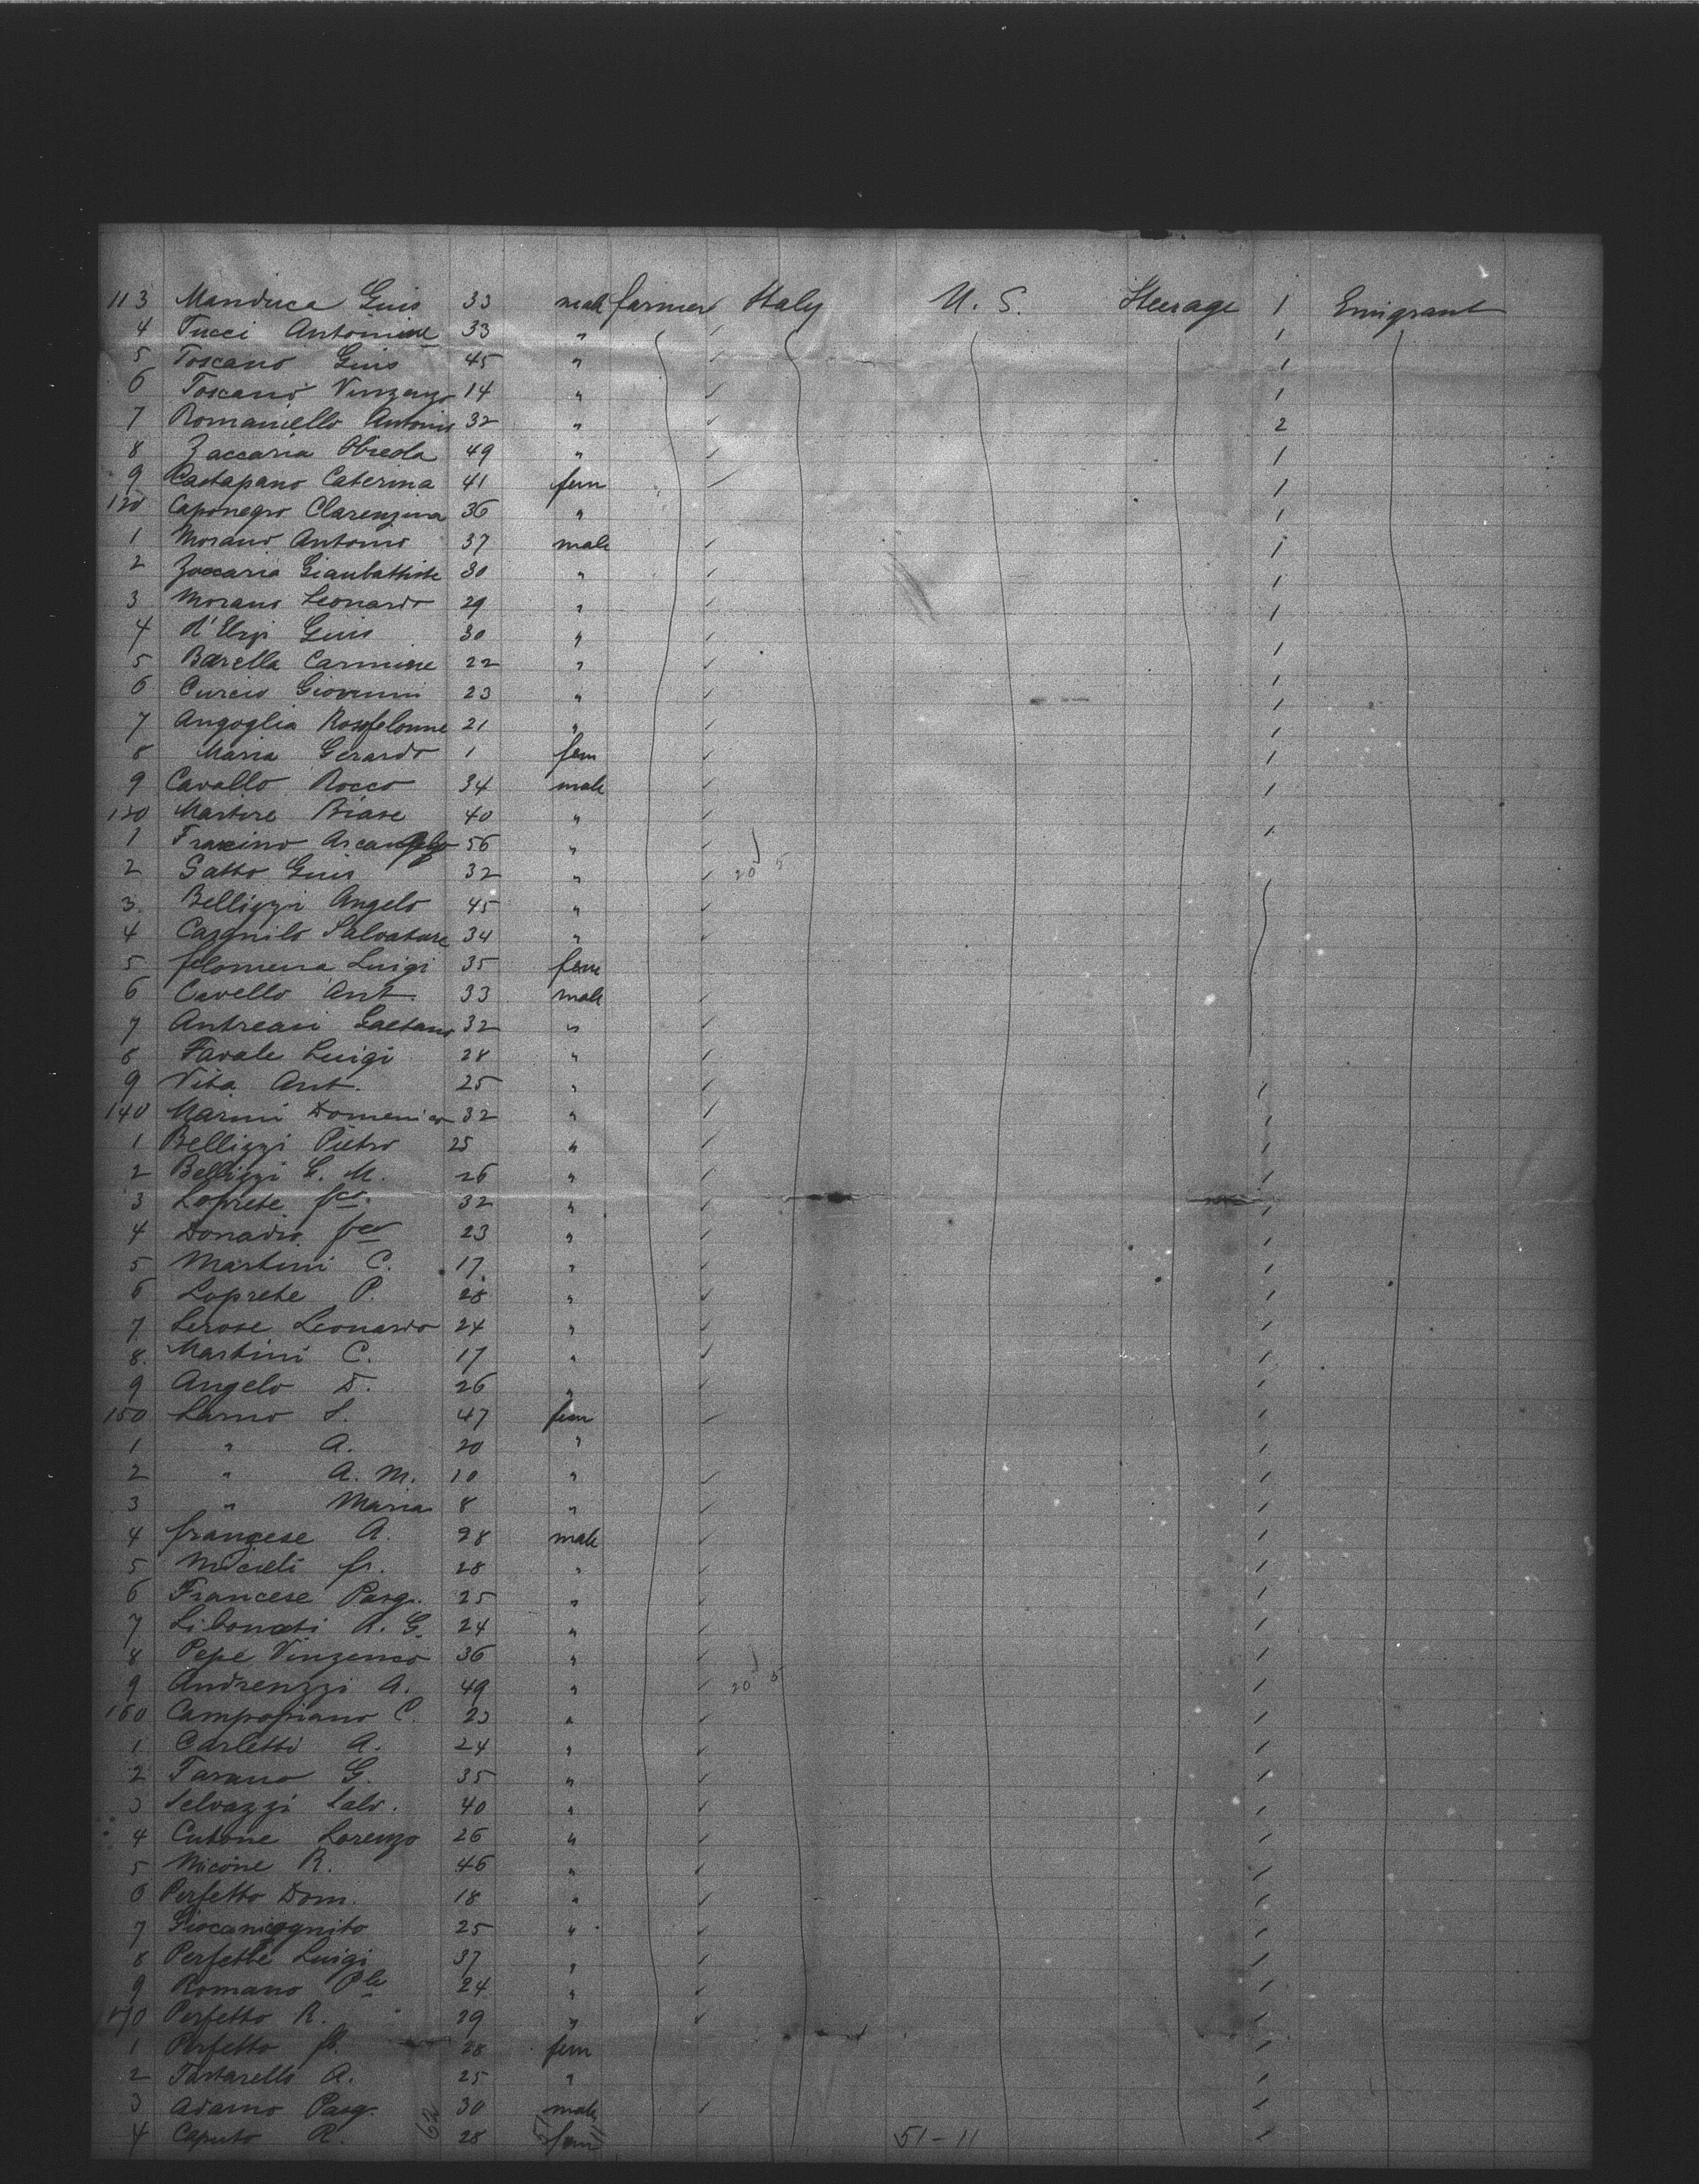 113 Manduca Guis 33 male farmer Italy U. S. Steerage 1 Emigrant
4 Tucci Antonine 33 " 1
5 Toscano Guis 45 " 1
6 Toscano Vinzenzo 14 " 1
7 Romaniello Antonio 32 " 2
8 Zaccaria 49 " 1
9 Castapano Caterina 41 fem 1
120 Caponegro Clarenzina 36 " 1
1 Morano Antonio 37 male 1
2 Zaccaria Gianbattiste 30 " 1
3 Morano Leonardo 29 " 1
4 d'Elpi Guis 30 " 1
5 Barella Carmine 22 " 1
6 Curcio Giovanni 23 " 1
7 Angoglia 21 " 1
8 Maria Gerardo 1 fem 1
9 Cavallo Rocco 34 male 1
130 Martire Biase 40 "
1 Frascino Arcangelo 56 " 1
2 Gatto Guis 32 " 20 5
3 Bellizzi Angelo 45 "
4 Salvatore 34 "
5 filomena Luigi 35 fem
6 Cavello Ant. 33 male
7 Antreani Gaetano 32 "
8 Favale Luigi 28 "
9 Vita Ant. 25 " 1
140 Marini Domenico 32 " 1
1 Bellizzi Pietro 25 " 1
2 Bellizzi G. M. 26 " 1
3 Loprete fco. 32 " 1
4 Donadio fco 23 " 1
5 Martini C. 17 " 1
6 Loprete P. 28 " 1
7 Lerose Leonardo 24 " 1
8 Martini C. 17 " 1
9 Angelo D. 26 " 1
150 Larno S. 47 fem 1
1 " A. 20 " 1
2 " A. M. 10 " 1
3 " Maria 8 " 1
4 francese A. 28 male 1
5 Miceli fr. 28 " 1
6 Francese Pasq. 25 " 1
7 Libonati A. G. 24 " 1
8 Pepe Vinzenco 36 " 1
9 Andrenzzi A. 49 " 20 5 1
160 Campopiano C. 23 " 1
1 Carletti A. 24 " 1
2 Tarano G. 35 " 1
3 Selvazzi Salv. 40 " 1
4 Cutone Lorenzo 26 " 1
5 Nicone R. 46 " 1
6 Perfetto Dom. 18 " 1
7 25 " 1
8 Perfette Luigi 37 " 1
9 Romano Ple 24 " 1
170 Perfetto R. 29 " 1
1 Perfetto fr. 28 fem 1
2 Tartarello A. 25 " 1
3 Adamo Pasq. 30 male 1
4 Caputo R. 62 28 fem 51-11 1